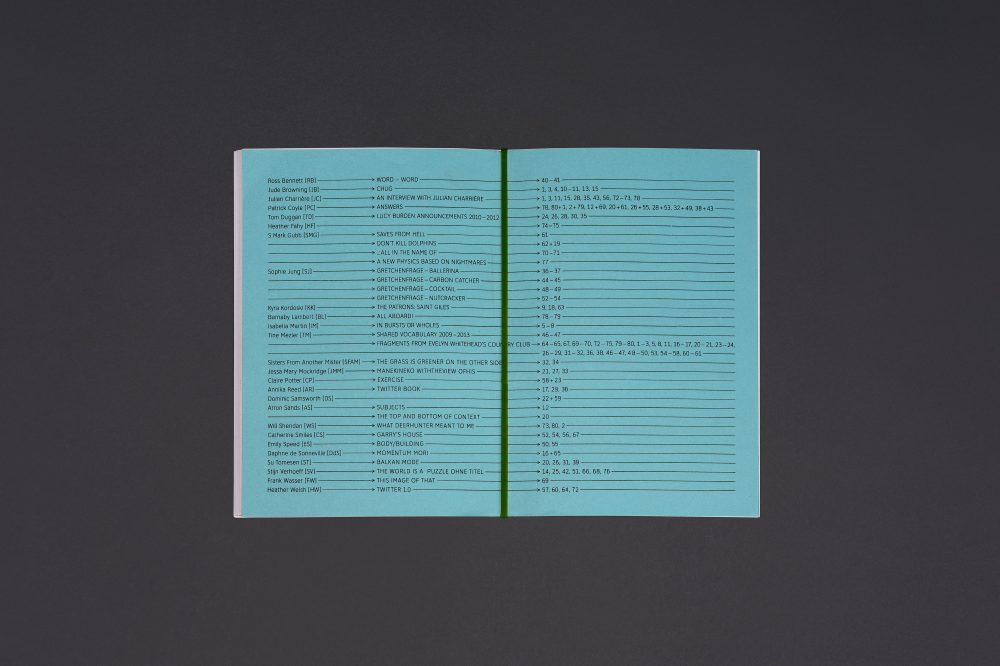 Ross Bennett [RB] → WORD – WORD → 40–41
Jude Browning [JB] → CHUG → 1, 3, 4, 10–11, 13, 15
Julian Charrière [JC] → AN INTERVIEW WITH JULIAN CHARRIÈRE → 1, 3, 11, 15, 28, 35, 43, 56, 72–73, 78
Patrick Coyle [PC] → ANSWERS → 78, 80+1, 2+79, 12+69, 20+61, 26+55, 28+53, 32+49, 38+43
Tom Duggan [TD] → LUCY BURDEN ANNOUNCEMENTS 2010–2012 → 24, 26, 28, 30, 35
Heather Fahy [HF] → 74–75
S Mark Gubb [SMG] → SAVES FROM HELL → 61
→ DON'T KILL DOLPHINS → 62+19
→ ...ALL IN THE NAME OF → 70–71
→ A NEW PHYSICS BASED ON NIGHTMARES → 77
Sophie Jung [SJ] → GRETCHENFRAGE – BALLERINA → 36–37
→ GRETCHENFRAGE – CARBON CATCHER → 44–45
→ GRETCHENFRAGE – COCKTAIL → 48–49
→ GRETCHENFRAGE – NUTCRACKER → 52–54
Kyra Kordoski [KK] → THE PATRONS: SAINT GILES → 9, 18, 63
Barnaby Lambert [BL] → ALL ABOARD! → 78–79
Isabella Martin [IM] → IN BURSTS OR WHOLES → 5–8
Tine Mezier [TM] → SHARED VOCABULARY 2009–2013 → 46–47
→ FRAGMENTS FROM EVELYN WHITEHEAD'S COUNTRY CLUB → 64–65, 67, 69–70, 72–75, 79–80, 1–3, 5, 8, 11, 16–17, 20–21, 23–24,
26–29, 31–32, 36, 38, 46–47, 48–50, 53, 54–58, 60–61
Sisters From Another Mister [SFAM] → THE GRASS IS GREENER ON THE OTHER SIDE → 32, 34
Jessa Mary Mockridge [JMM] → MANEKINEKO WITHTHEVIEW OFHIS → 21, 27, 33
Claire Potter [CP] → EXERCISE → 58+23
Annika Reed [AR] → TWITTER BOOK → 17, 29, 36
Dominic Samsworth [DS] → 22+59
Arron Sands [AS] → SUBJECTS → 12
→ THE TOP AND BOTTOM OF CONTEXT → 20
Will Sheridan [WS] → WHAT DEERHUNTER MEANT TO ME → 73, 80, 2
Catherine Smiles [CS] → GARRY'S HOUSE → 52, 54, 56, 67
Emily Speed [ES] → BODY/BUILDING → 50, 55
Daphne de Sonneville [DdS] → MOMENTUM MORI → 16+65
Su Tomesen [ST] → BALKAN MODE → 20, 26, 31, 39
Stijn Verhoeff [SV] → THE WORLD IS A PUZZLE OHNE TITEL → 14, 25, 42, 51, 66, 68, 76
Frank Wasser [FW] → THIS IMAGE OF THAT → 69
Heather Welsh [HW] → TWITTER 1.0 → 57, 60, 64, 72